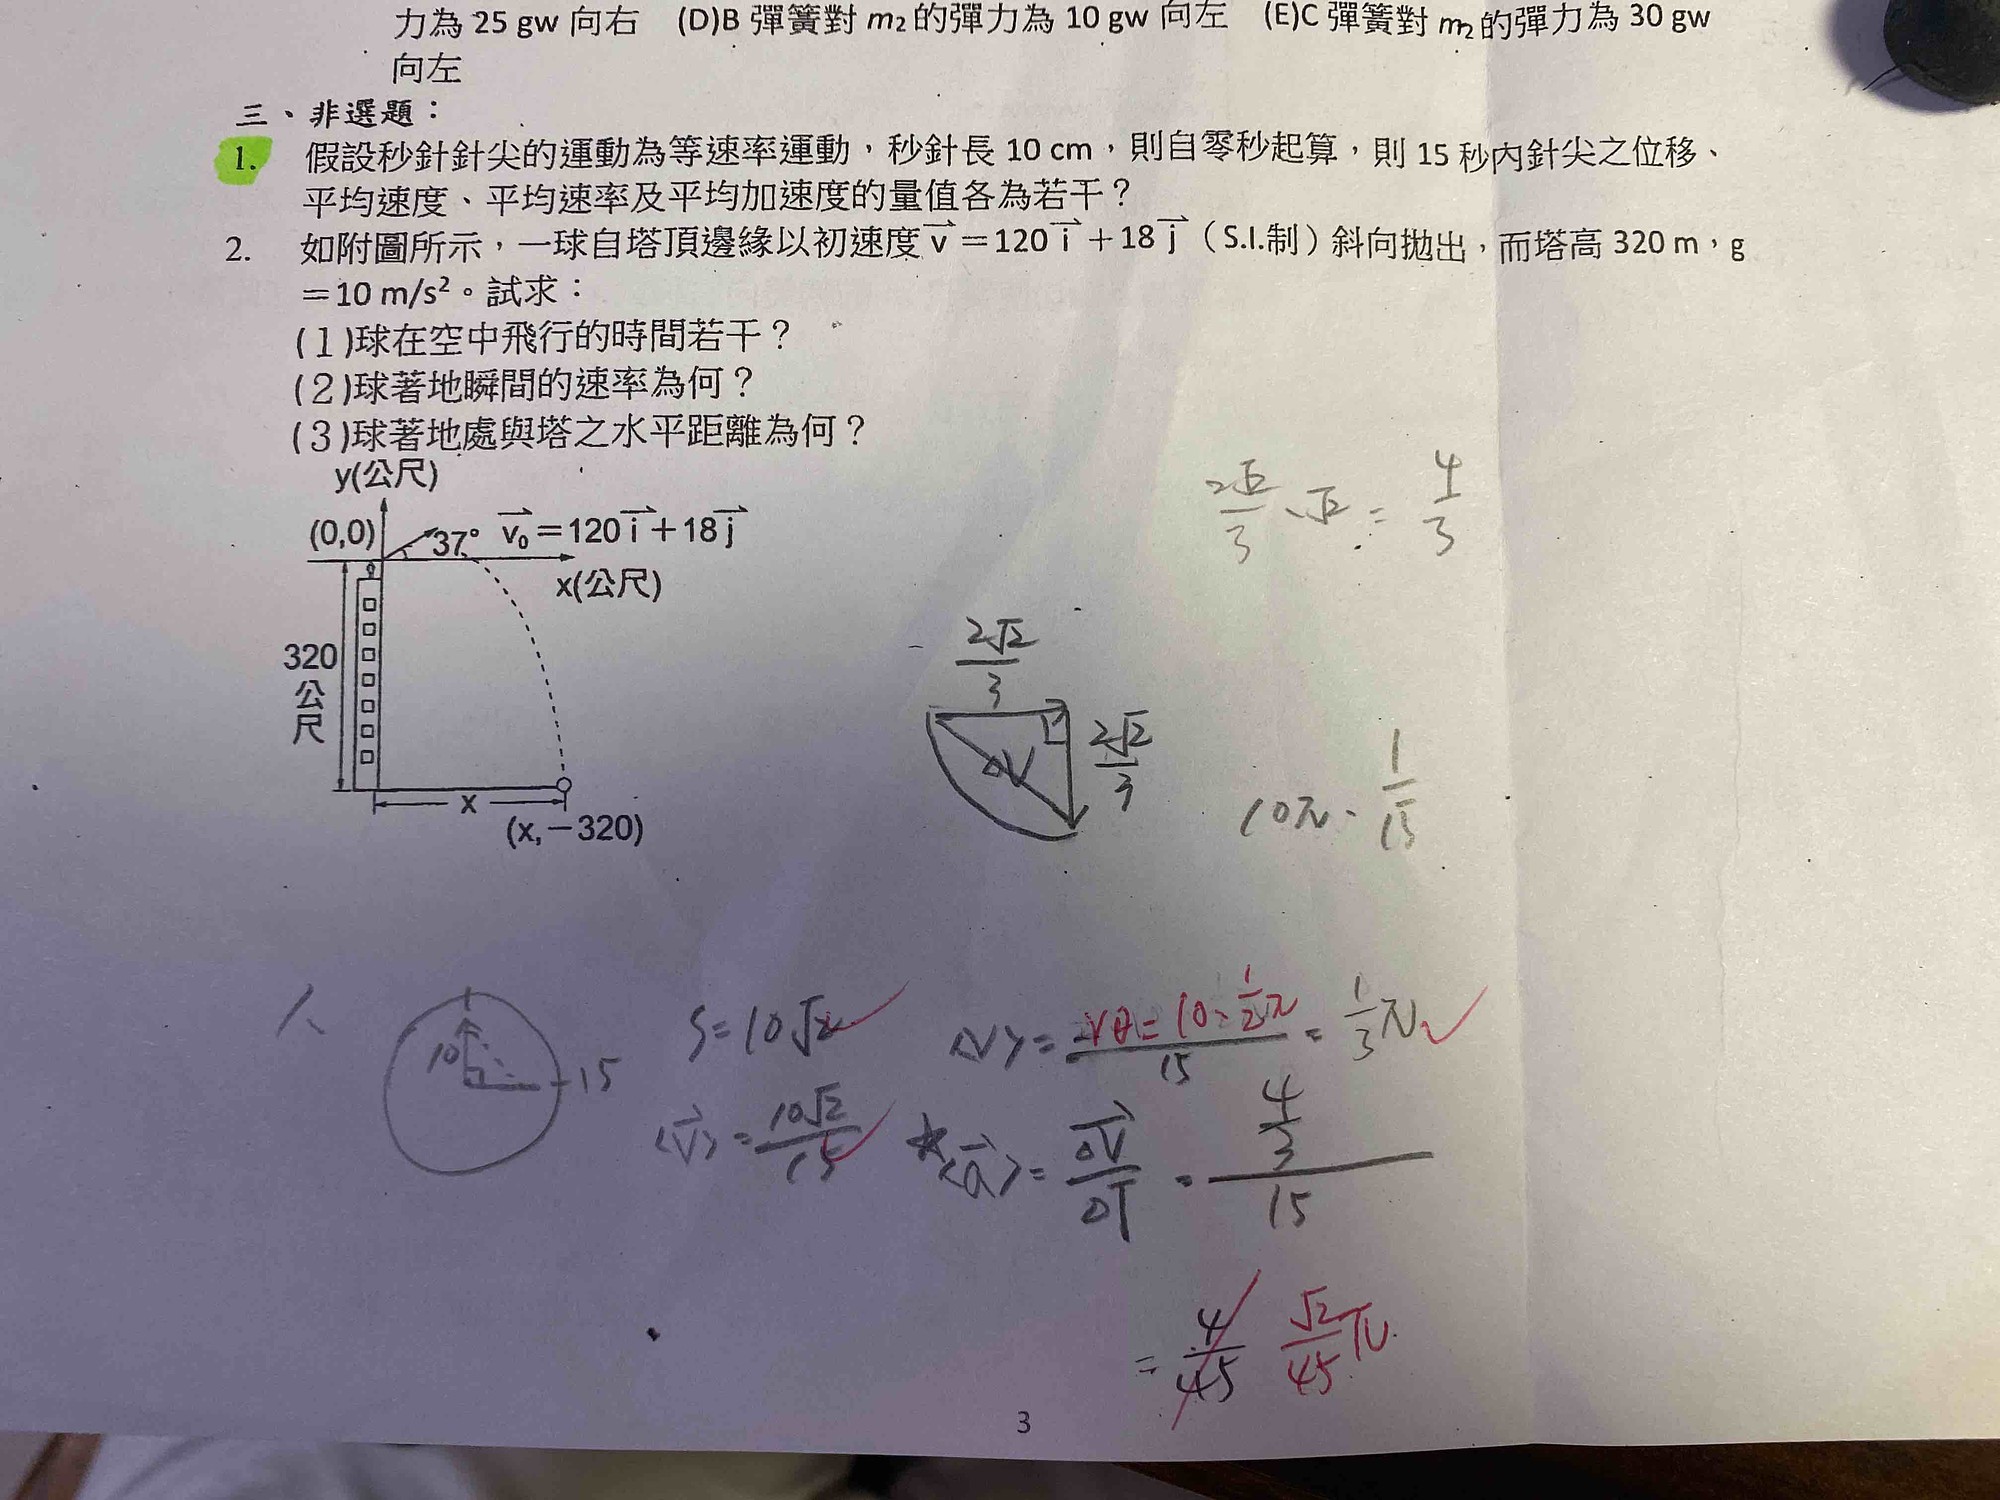 力為 25 gw 向右 (D)B 彈簧對 m₂ 的彈力為 10 gw 向左 (E)C 彈簧對 m₂ 的彈力為 30 gw
向左
三、非選題：
1. 假設秒針針尖的運動為等速率運動，秒針長 10 cm，則自零秒起算，則 15 秒內針尖之位移、
平均速度、平均速率及平均加速度的量值各為若干？
2. 如附圖所示，一球自塔頂邊緣以初速度 v⃗＝120 i⃗＋18 j⃗（S.I.制）斜向拋出，而塔高 320 m，g
＝10 m/s²。試求：
(1)球在空中飛行的時間若干？
(2)球著地瞬間的速率為何？
(3)球著地處與塔之水平距離為何？
y(公尺)
(0,0) 37° v₀⃗＝120 i⃗＋18 j⃗
x(公尺)
320
公
尺
x
(x,－320)
2√2/3 · √2 = 4/3
2√2/3
2√2/3
ΔV
10π · 1/15
1
10
15
S = 10√2
<V> = rθ = 10 · 1/2 π / 15 = 1/3 π
<V⃗> = 10√2/15
*<a⃗> = ΔV⃗/ΔT = 4/3 / 15
= 4/45 √2/45 π
3